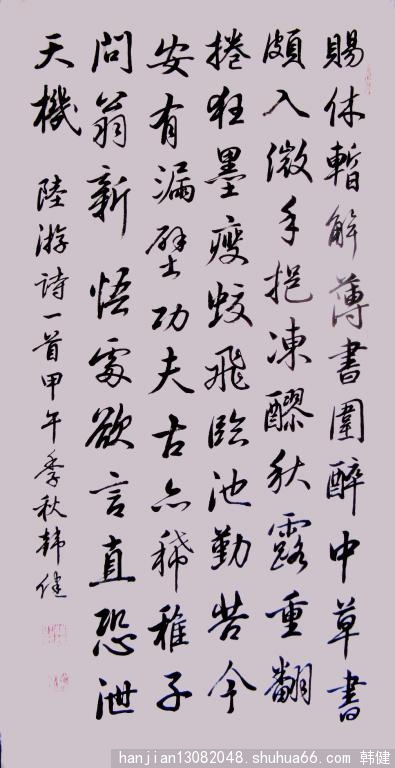 賜休暫解薄書圍醉中草書
頗入微手挹凍醪秋露重翻
捲狂墨瘦蛟飛臨池勤苦今
安有漏壁功夫古亦稀稚子
問翁新悟處欲言直恐泄
天機 陸游詩一首甲午季秋韓健
hanjian13082048.shuhua66.com 韩健